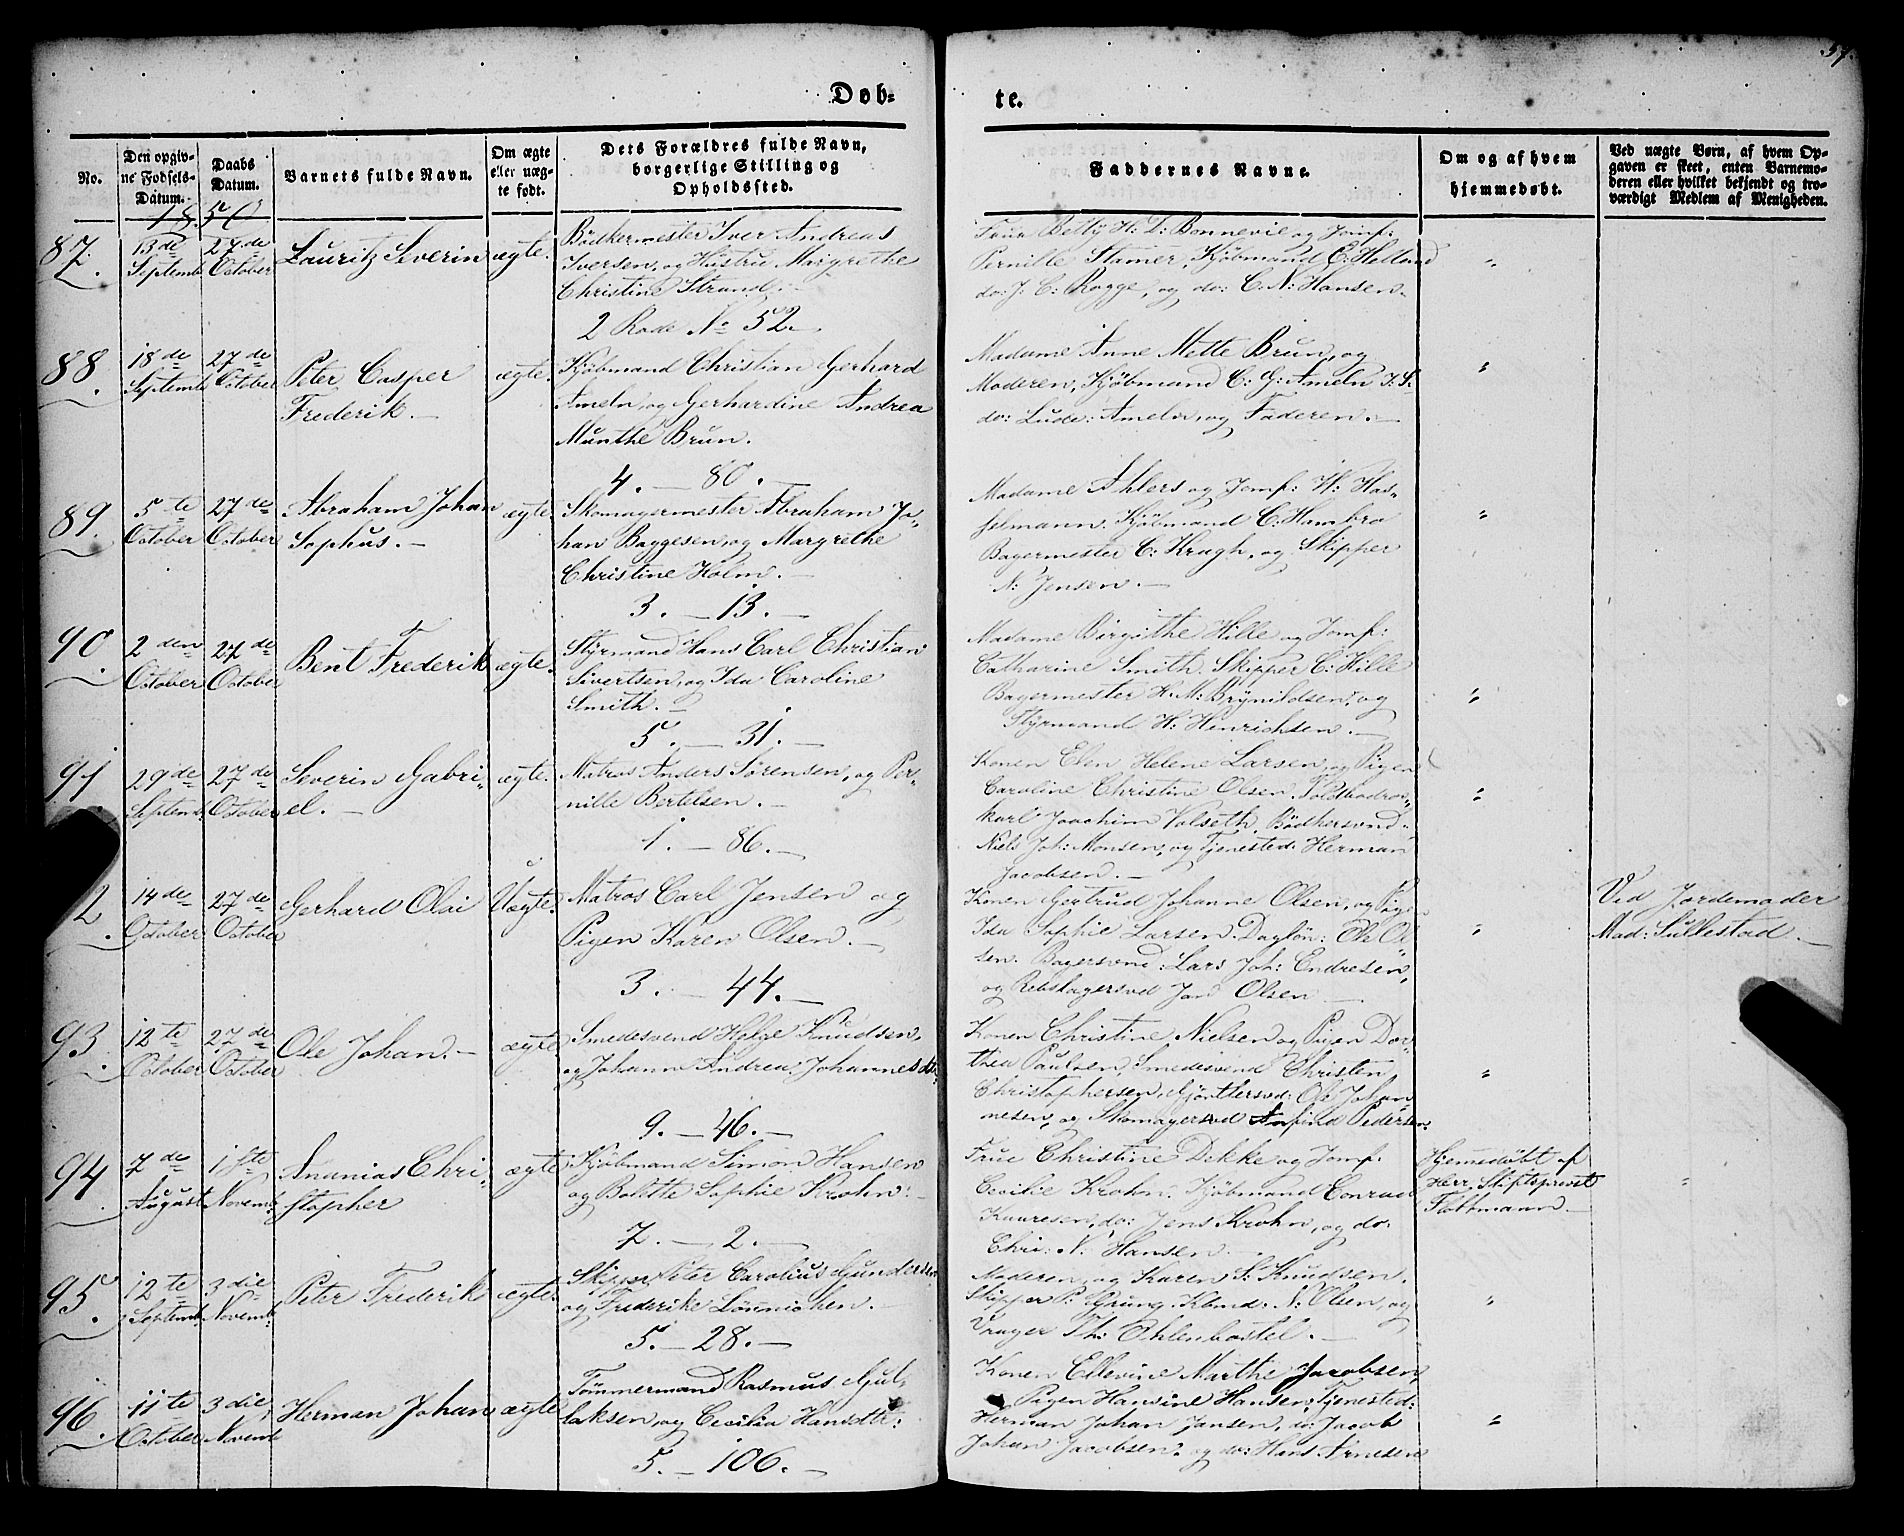 57.
Døb-
te.
No.
Den opgiv-
ne Fødsels-
Datum.
Daabs
Datum.
Barnets fulde Navn.
Om ægte
eller uæg-
te født.
Dets Forældres fulde Navn,
borgerlige Stilling og
Opholdssted.
Faddernes Navne.
Om og af hvem
hjemmedøbt.
Ved uægte Børn, af hvem Op-
gaven er skeet, enten Barnemo-
deren eller hvilket bekjendt og tro-
værdigt Medlem af Menigheden.
1850
87.
13de
Septemb
27de
October
Lauritz Severin
ægte.
Bødkermester Iver Andreas
Iversen, og Hustru Margrethe
Christine Strand. -
2 Rode No 52.
Frue Betty H. D: Bonnevie og Jomf:
Pernille Stamer, Kjøbmand C: Holland
do: J: C: Rogge, og do: C: N: Hansen.
88.
18de
Septemb
27de
October
Peter Casper
Frederik. -
ægte.
Kjøbmand Christian Gerhard
Ameln, og Gerhardine Andrea
Munthe Brun.
4. - 80. -
Madame Anne Mette Brun, og
Moderen, Kjøbmand C: G: Ameln
do: Lude: Ameln, og Faderen. -
89.
5te
October
27de
October
Abraham Johan
Sophus. -
ægte.
Skomagermester Abraham Jo-
han Baggesen, og Margrethe
Christine Holm. -
3. - 13. -
Madame Ahlers og Jomf: H: Has-
selmann. Kjøbmand C. Hambro
Bagermester C: Kragh, og Skipper
N: Jensen. -
90.
2den
October
27de
October
Bent Frederik
ægte.
Styrmand Hans Carl Christian
Sivertsen, og Ida Caroline
Smith. -
5. - 31. -
Madame Birgithe Hille og Jomf:
Catharine Smith. Skipper C: Hille
Bagermester H. M: Brynildsen, og
Styrmand H: Henrichsen. -
91.
29de
Septemb:
27de
October
Severin Gabri-
el. -
ægte.
Matros Anders Sørensen, og Per-
nille Bertelsen. -
1. - 86. -
Konen Elen Helene Larsen, og Pigen
Caroline Christine Olsen. Toldbodroes-
karl Joachim Valseth, Bødkersvend
Niels Joh: Monsen, og Tjenested: Herman
Jacobsen. -
2
14de
October
27de
October.
Gerhard Olai
Uægte.
Matros Carl Jensen og
Pigen Karen Olsen. -
3. - 44. -
Konen Gertrud Johanne Olsen, og Pigen
Ida Sophie Larsen. Dagløn: Ole Ol-
sen. Bagersvend: Lars Joh: Endresen,
og Rebslagersvd Jan Olsen -
Ved Jordemoder
Mad: Sullestad. -
93.
12te
October
27de
October
Ole Johan. -
ægte
Smedesvend Helge Knudsen,
og Johanne Andrea Johannesdtr.
9. - 46. -
Konen Christine Nielsen og Pigen Dor-
thea Paulsen, Smedesvend Christen
Christophersen, Gjørtlersvd: Ole Johan-
nesen, og Skomagersvd Anfind Pedersen.
94.
7de
August
1ste
Novemb:
Ananias Chri-
stopher
ægte
Kjøbmand Simon Hansen
og Bolette Sophie Krohn. -
7. - 2. -
Frue Christine Dekke og Jomf:
Cecilie Krohn. Kjøbmand Conrad
Kaaresen, do: Jens Krohn, og do:
Chri: N: Hansen.
Hjemmedøbt af
Herr Stiftsprovst
Flottmann. -
95.
12te
Septemb:
3die
Novemb:
Peter Frederik
ægte.
Skipper Peter Carolius Gundersen
og Frederike Lønnichen.
5. - 28. -
Moderen, og Karen S: Knudsen.
Skipper P: Grung. Kbmd: N: Olsen, og
Vrager Th: Ehlenbostel. -
96.
11te
October
3die
Novemb
Herman Johan
ægte
Tømmermand Rasmus Gul-
laksen, og Cecilia Hansdtr:
5. - 106. -
Konen Ellevine Marthe Jacobsen
Pigen Hansine Hansen, Tjenested:
Herman Johan Jansen, do: Jacob
Johan Jacobsen, og do: Hans Arnesen